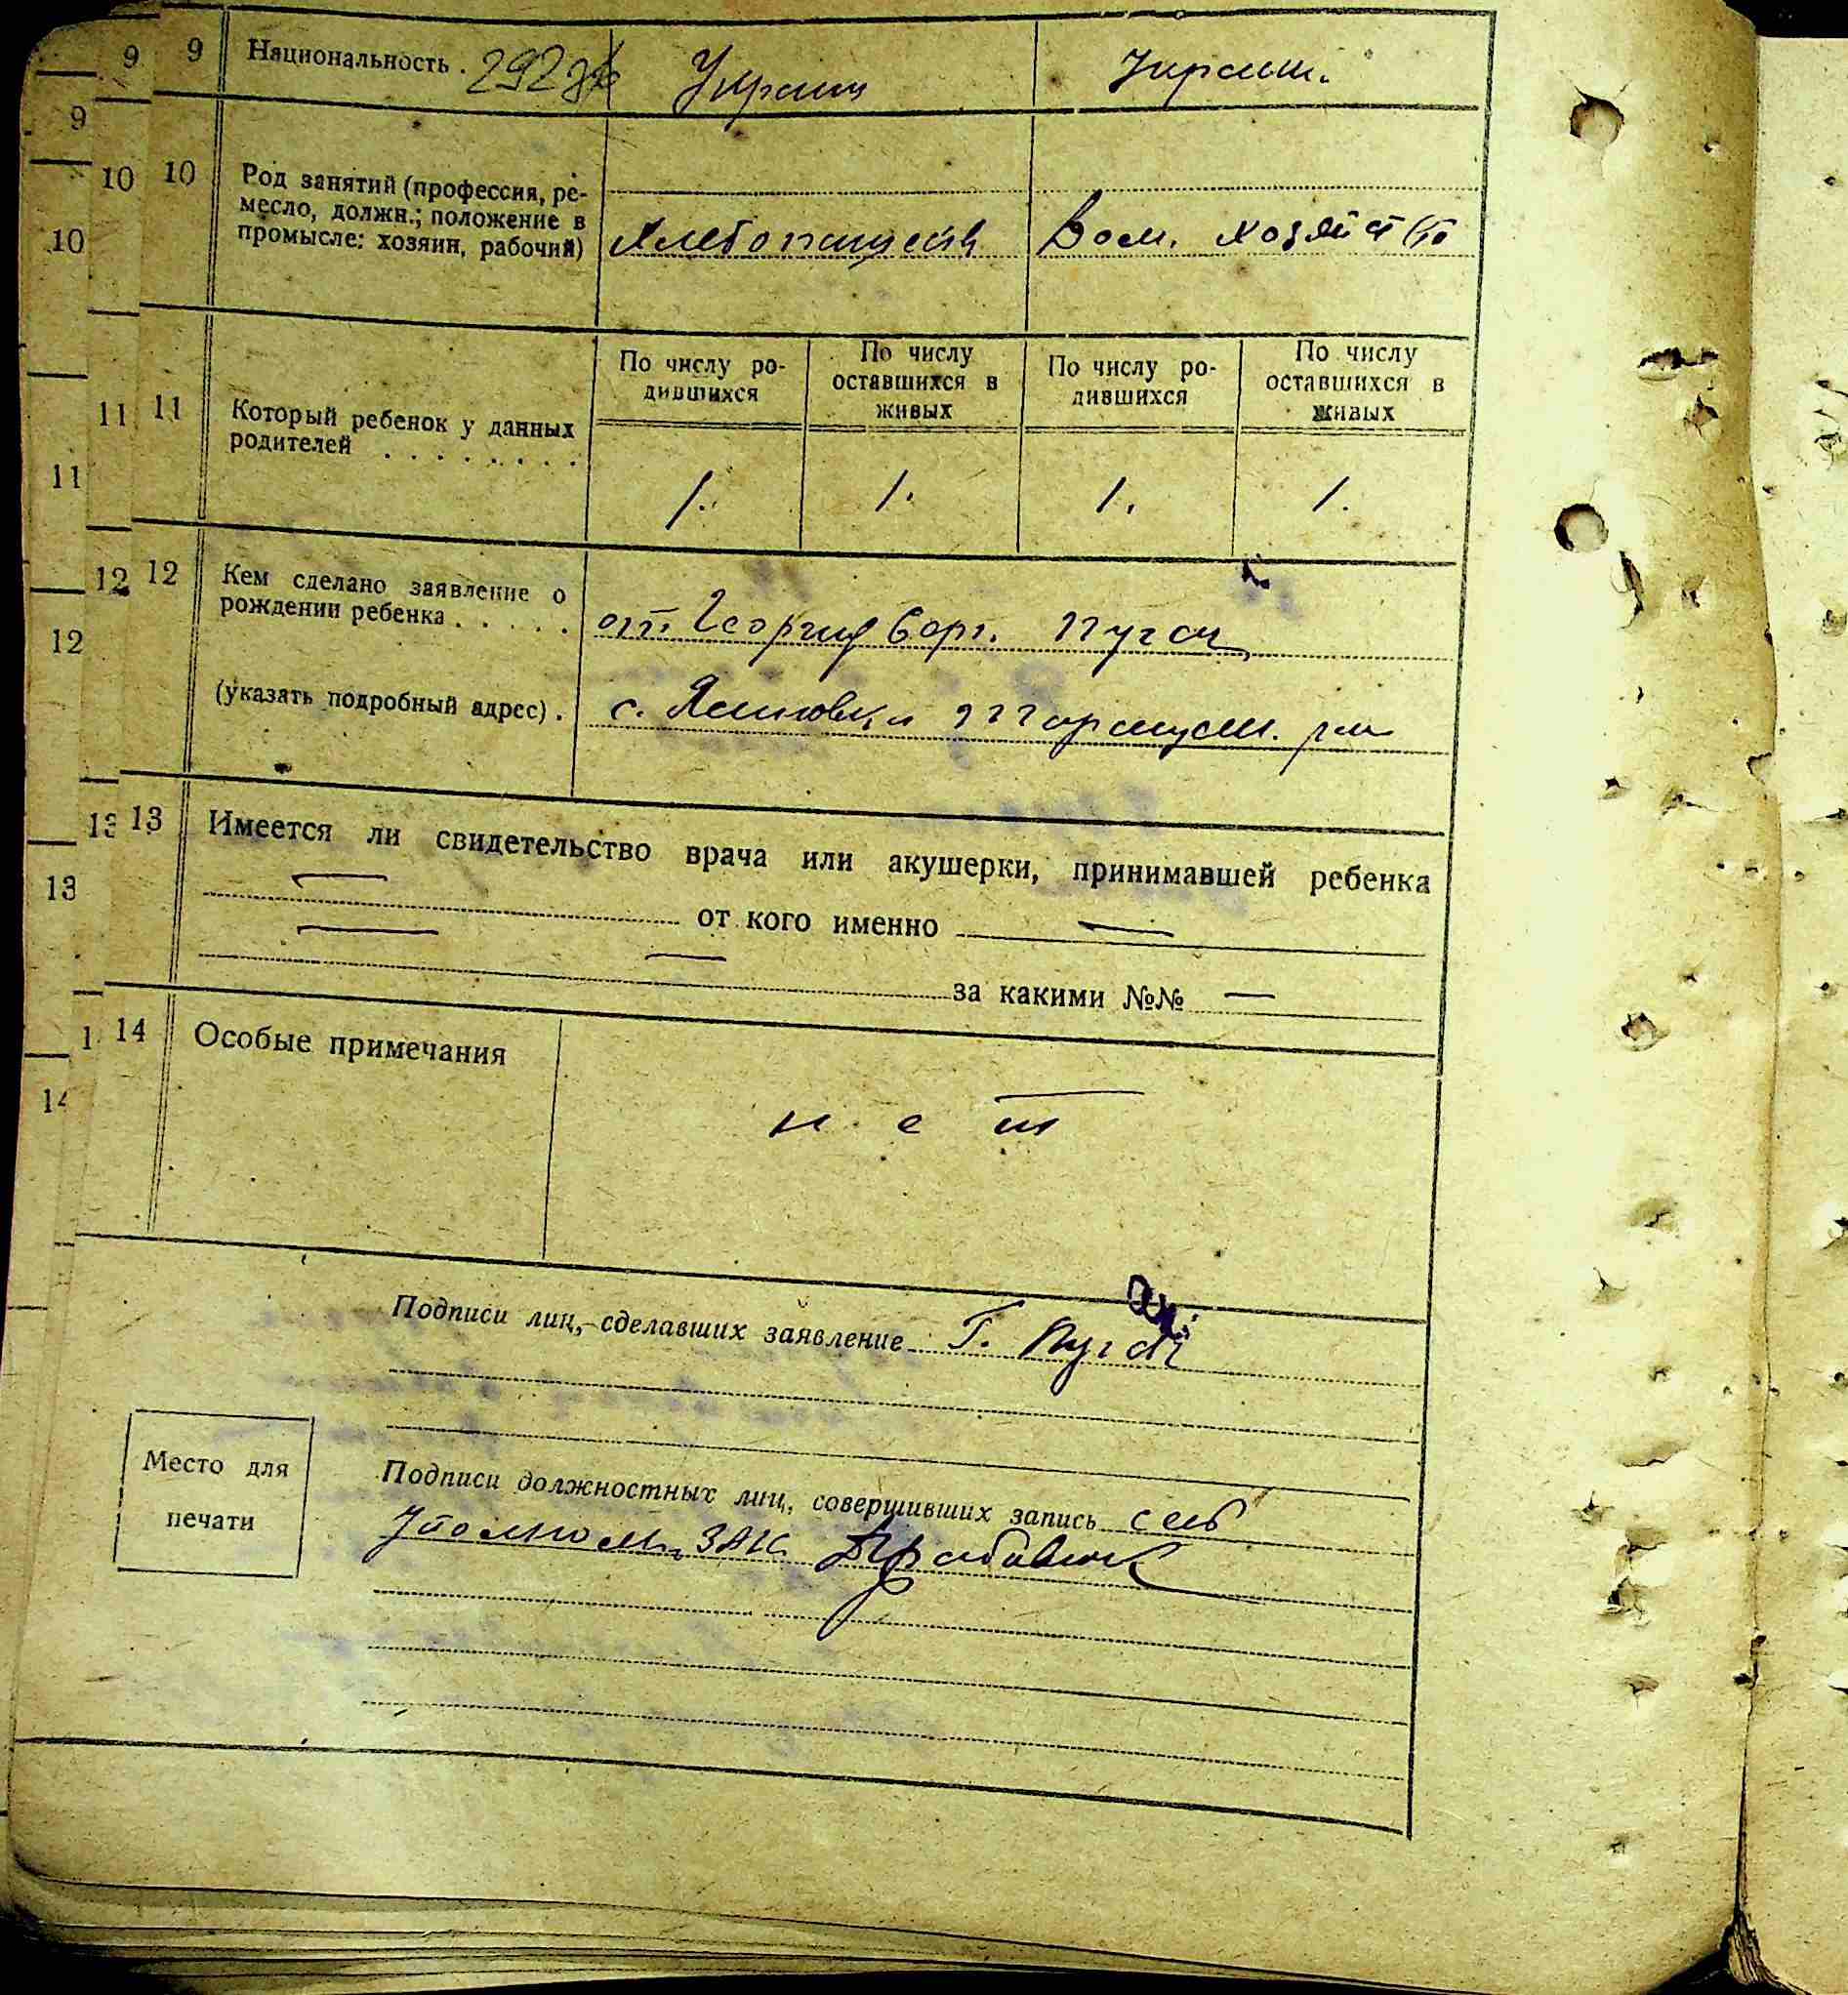 9 9 Национальность . Украин Украин.
9
10 10 Род занятий (профессия, ре-
месло, должн.; положение в
10 промысле: хозяин, рабочий) В дом. хозяйств
По числу ро- По числу По числу ро- По числу
дившихся оставшихся в дившихся оставшихся в
живых живых
11 11 Который ребенок у данных
родителей . . . . . . . .
11 1. 1. 1. 1.
12 12 Кем сделано заявление о
рождении ребенка . . . . . от. Георгия
12
(указать подробный адрес) . с.
13 13 Имеется ли свидетельство врача или акушерки, принимавшей ребенка
13 — от кого именно —
— — за какими №№ —
1 14 Особые примечания
14 нет
Подписи лиц, сделавших заявление Г.
Место для
печати
Подписи должностных лиц, совершивших запись
ЗАГС